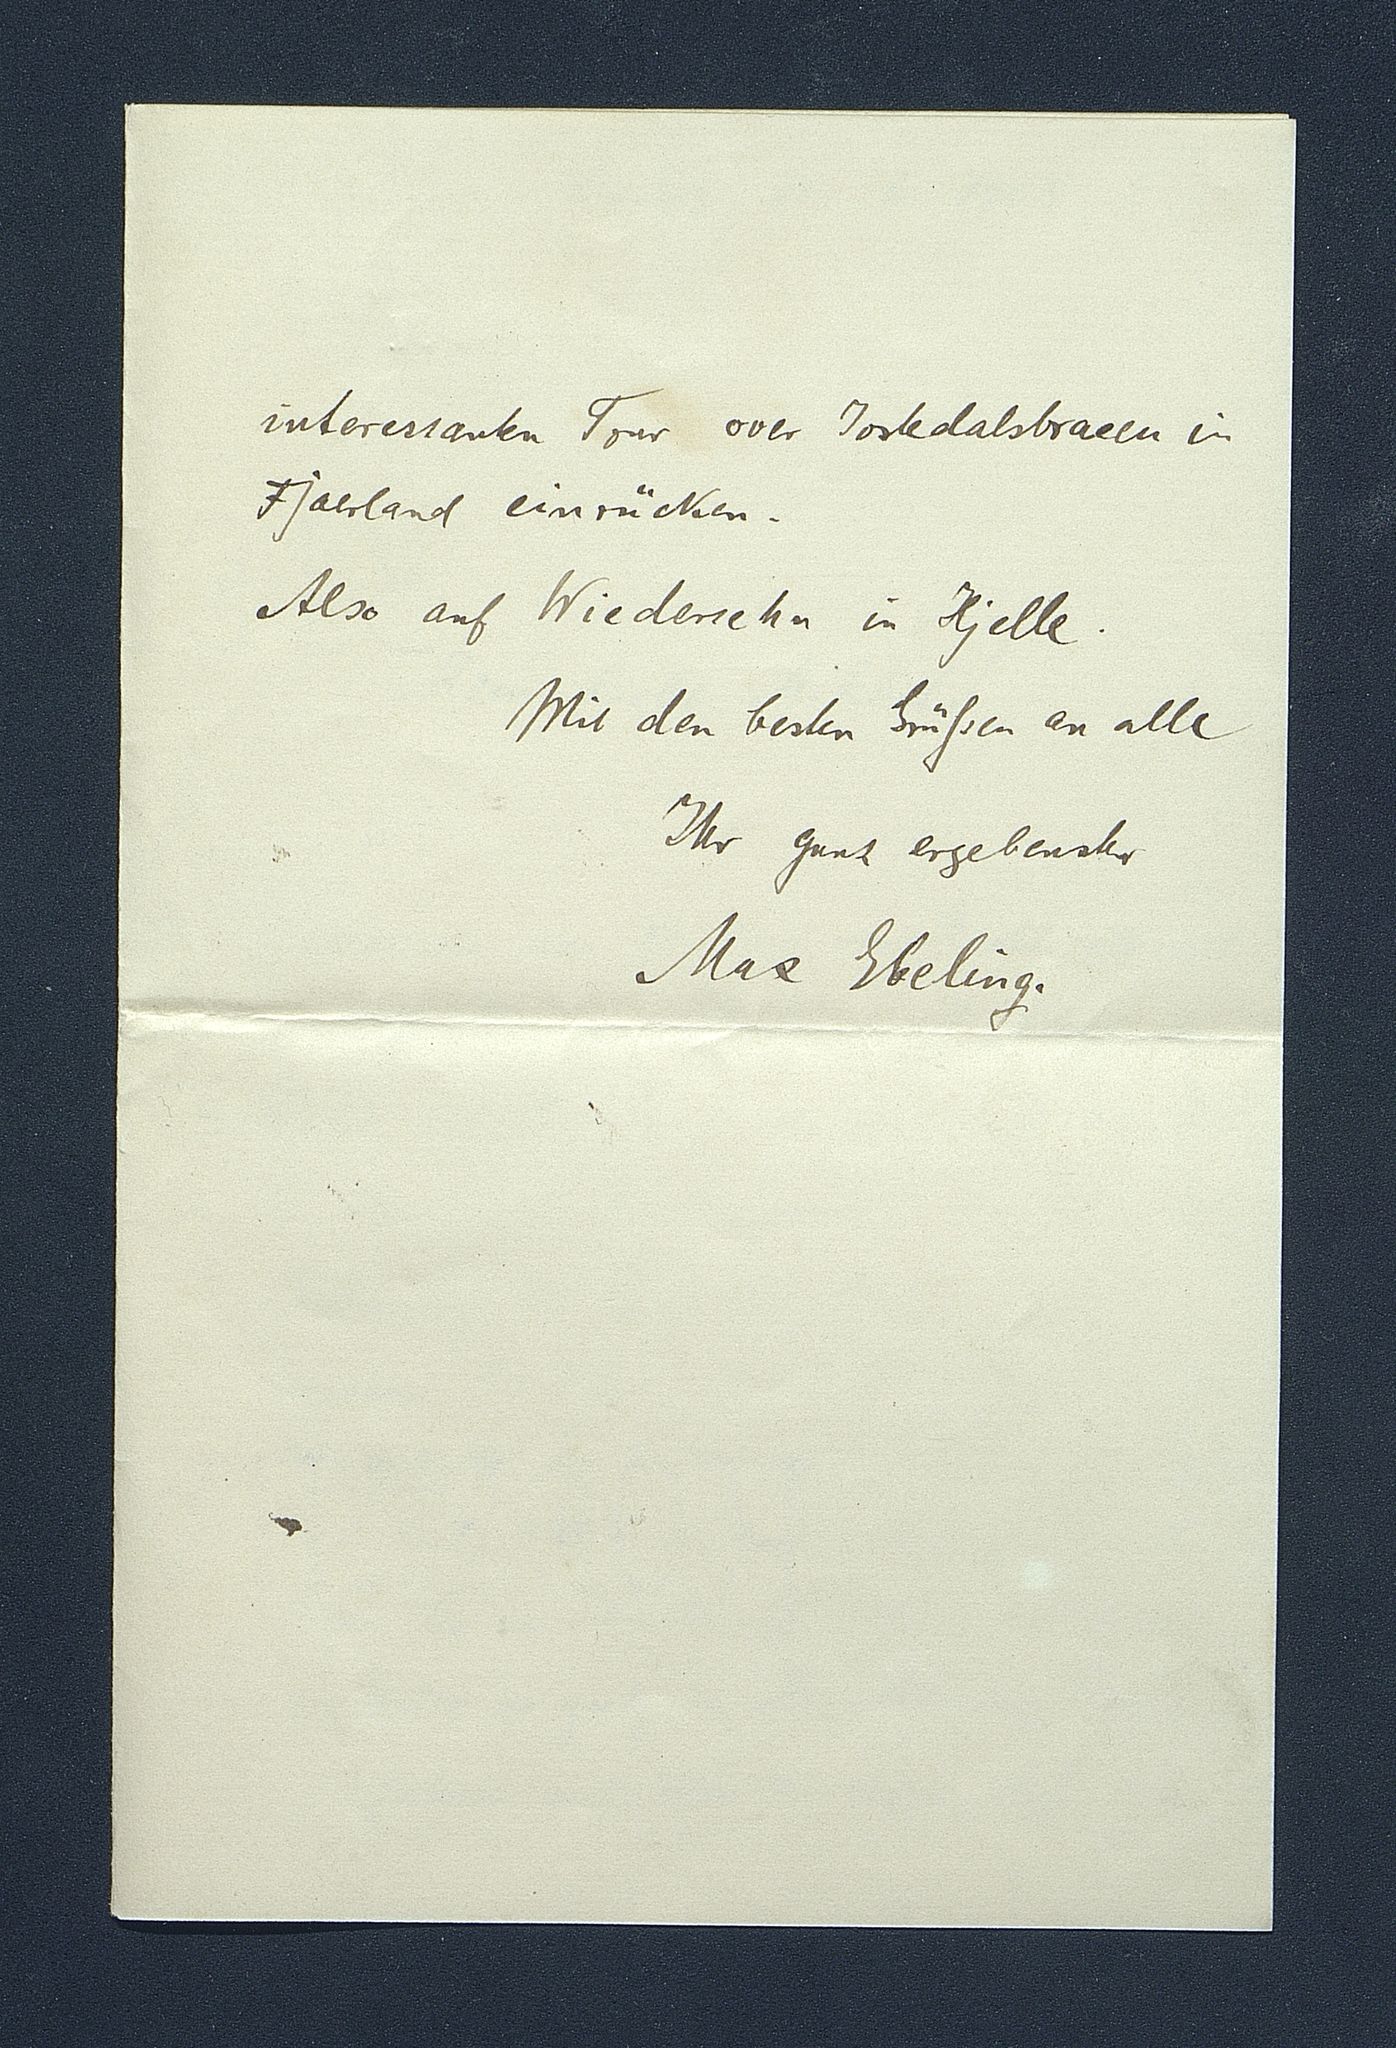 interessanten Tour over Jostedalsbraeen in
Fjaerland einrücken.
Also auf Wiedersehn in Hjelle.
Mit den besten Grüßen an alle
Ihr ganz ergebenster
Max Ebeling.